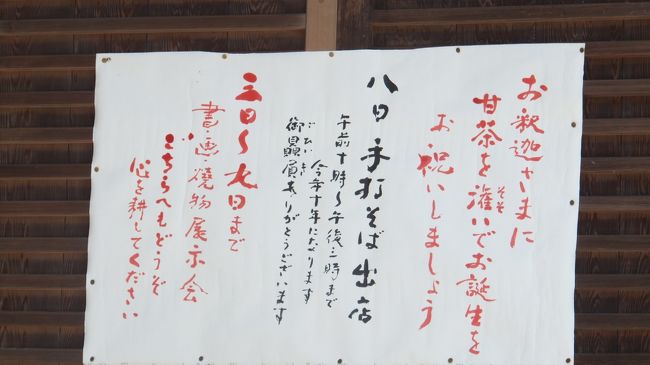 お釈迦さまに
甘茶を灌いでお誕生を
そそ
お祝いしましょう
八日 手打そば出店
午前十時〜午後三時まで
今年十年になります
ごひいき
御贔屓ありがとうございます
三日〜九日まで
書・画・焼物展示会
こちらへもどうぞ
心を耕してください